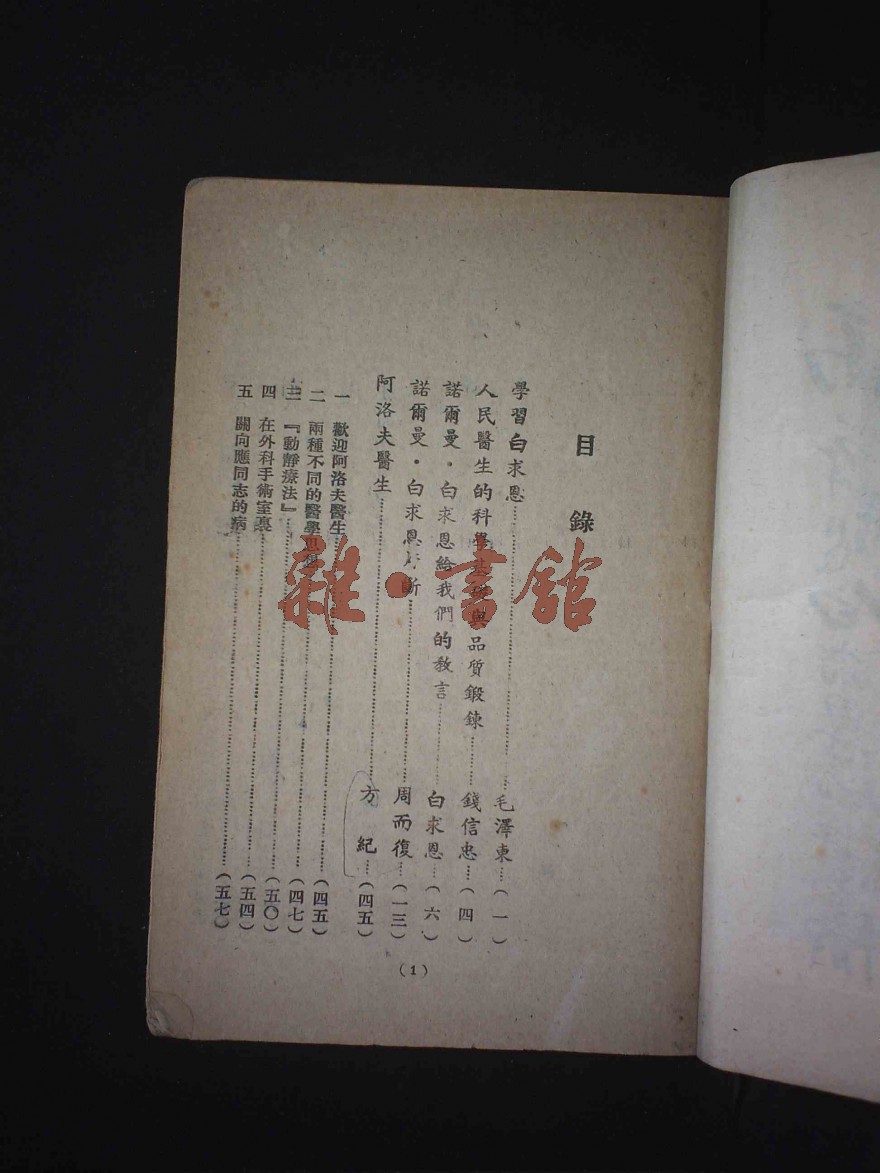 目錄
學習白求恩……毛澤東……(一)
人民醫生的科學基礎與品質鍛鍊……錢信忠……(四)
諾爾曼·白求恩給我們的教言……白求恩……(六)
諾爾曼·白求恩 斷……周而復……(一三)
阿洛夫醫生……方紀……(四五)
一 歡迎阿洛夫醫生……(四五)
二 兩種不同的醫學思想……(四七)
三 『動靜療法』……(五〇)
四 在外科手術室裏……(五四)
五 關向應同志的病……(五七)
(1)
雜·書館